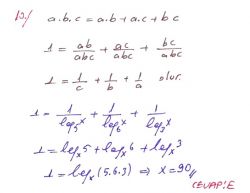 10./ a.b.c = a.b + a.c + b c
1 = ab/abc + ac/abc + bc/abc
1 = 1/c + 1/b + 1/a olur.
1 = 1/log₅x + 1/log₆x + 1/log₃x
1 = logₓ5 + logₓ6 + logₓ3
1 = logₓ(5.6.3) ⇒ x = 90//
CEVAP: E